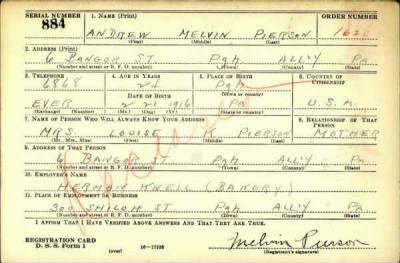 SERIAL NUMBER 1. NAME (Print) ORDER NUMBER
884 ANDREW MELVIN PIERSON
(First) (Middle) (Last)
2. ADDRESS (Print)
6 BANGOR ST Pgh ALL'Y Pa
(Number and street or R. F. D. number) (Town) (County) (State)
3. TELEPHONE 4. AGE IN YEARS 5. PLACE OF BIRTH 6. COUNTRY OF CITIZENSHIP
6868 24 Pgh
DATE OF BIRTH (Town or county)
EVER 2 21 1916 Pa U.S.A.
(Exchange) (Number) (Mo.) (Day) (Yr.) (State or country)
7. NAME OF PERSON WHO WILL ALWAYS KNOW YOUR ADDRESS 8. RELATIONSHIP OF THAT PERSON
MRS. LOUISE K PIERSON MOTHER
(Mr., Mrs., Miss) (First) (Middle) (Last)
9. ADDRESS OF THAT PERSON
6 BANGOR ST Pgh ALL'Y Pa
(Number and street or R. F. D. number) (Town) (County) (State)
10. EMPLOYER'S NAME
HERMAN KNELL (BAKERY)
11. PLACE OF EMPLOYMENT OR BUSINESS
300 SHILOH ST Pgh ALL'Y Pa
(Number and street or R. F. D. number) (Town) (County) (State)
I AFFIRM THAT I HAVE VERIFIED ABOVE ANSWERS AND THAT THEY ARE TRUE.
REGISTRATION CARD
D. S. S. Form 1 (over) 16—17105 Melvin Pierson
(Registrant's signature)